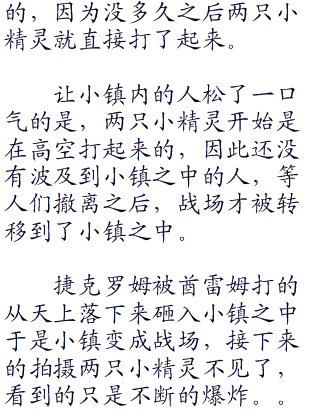 的，因为没多久之后两只小
精灵就直接打了起来。
让小镇内的人松了一口
气的是，两只小精灵开始是
在高空打起来的，因此还没
有波及到小镇之中的人，等
人们撤离之后，战场才被转
移到了小镇之中。
捷克罗姆被酋雷姆打的
从天上落下来砸入小镇之中
于是小镇变成战场，接下来
的拍摄两只小精灵不见了，
看到的只是不断的爆炸。。